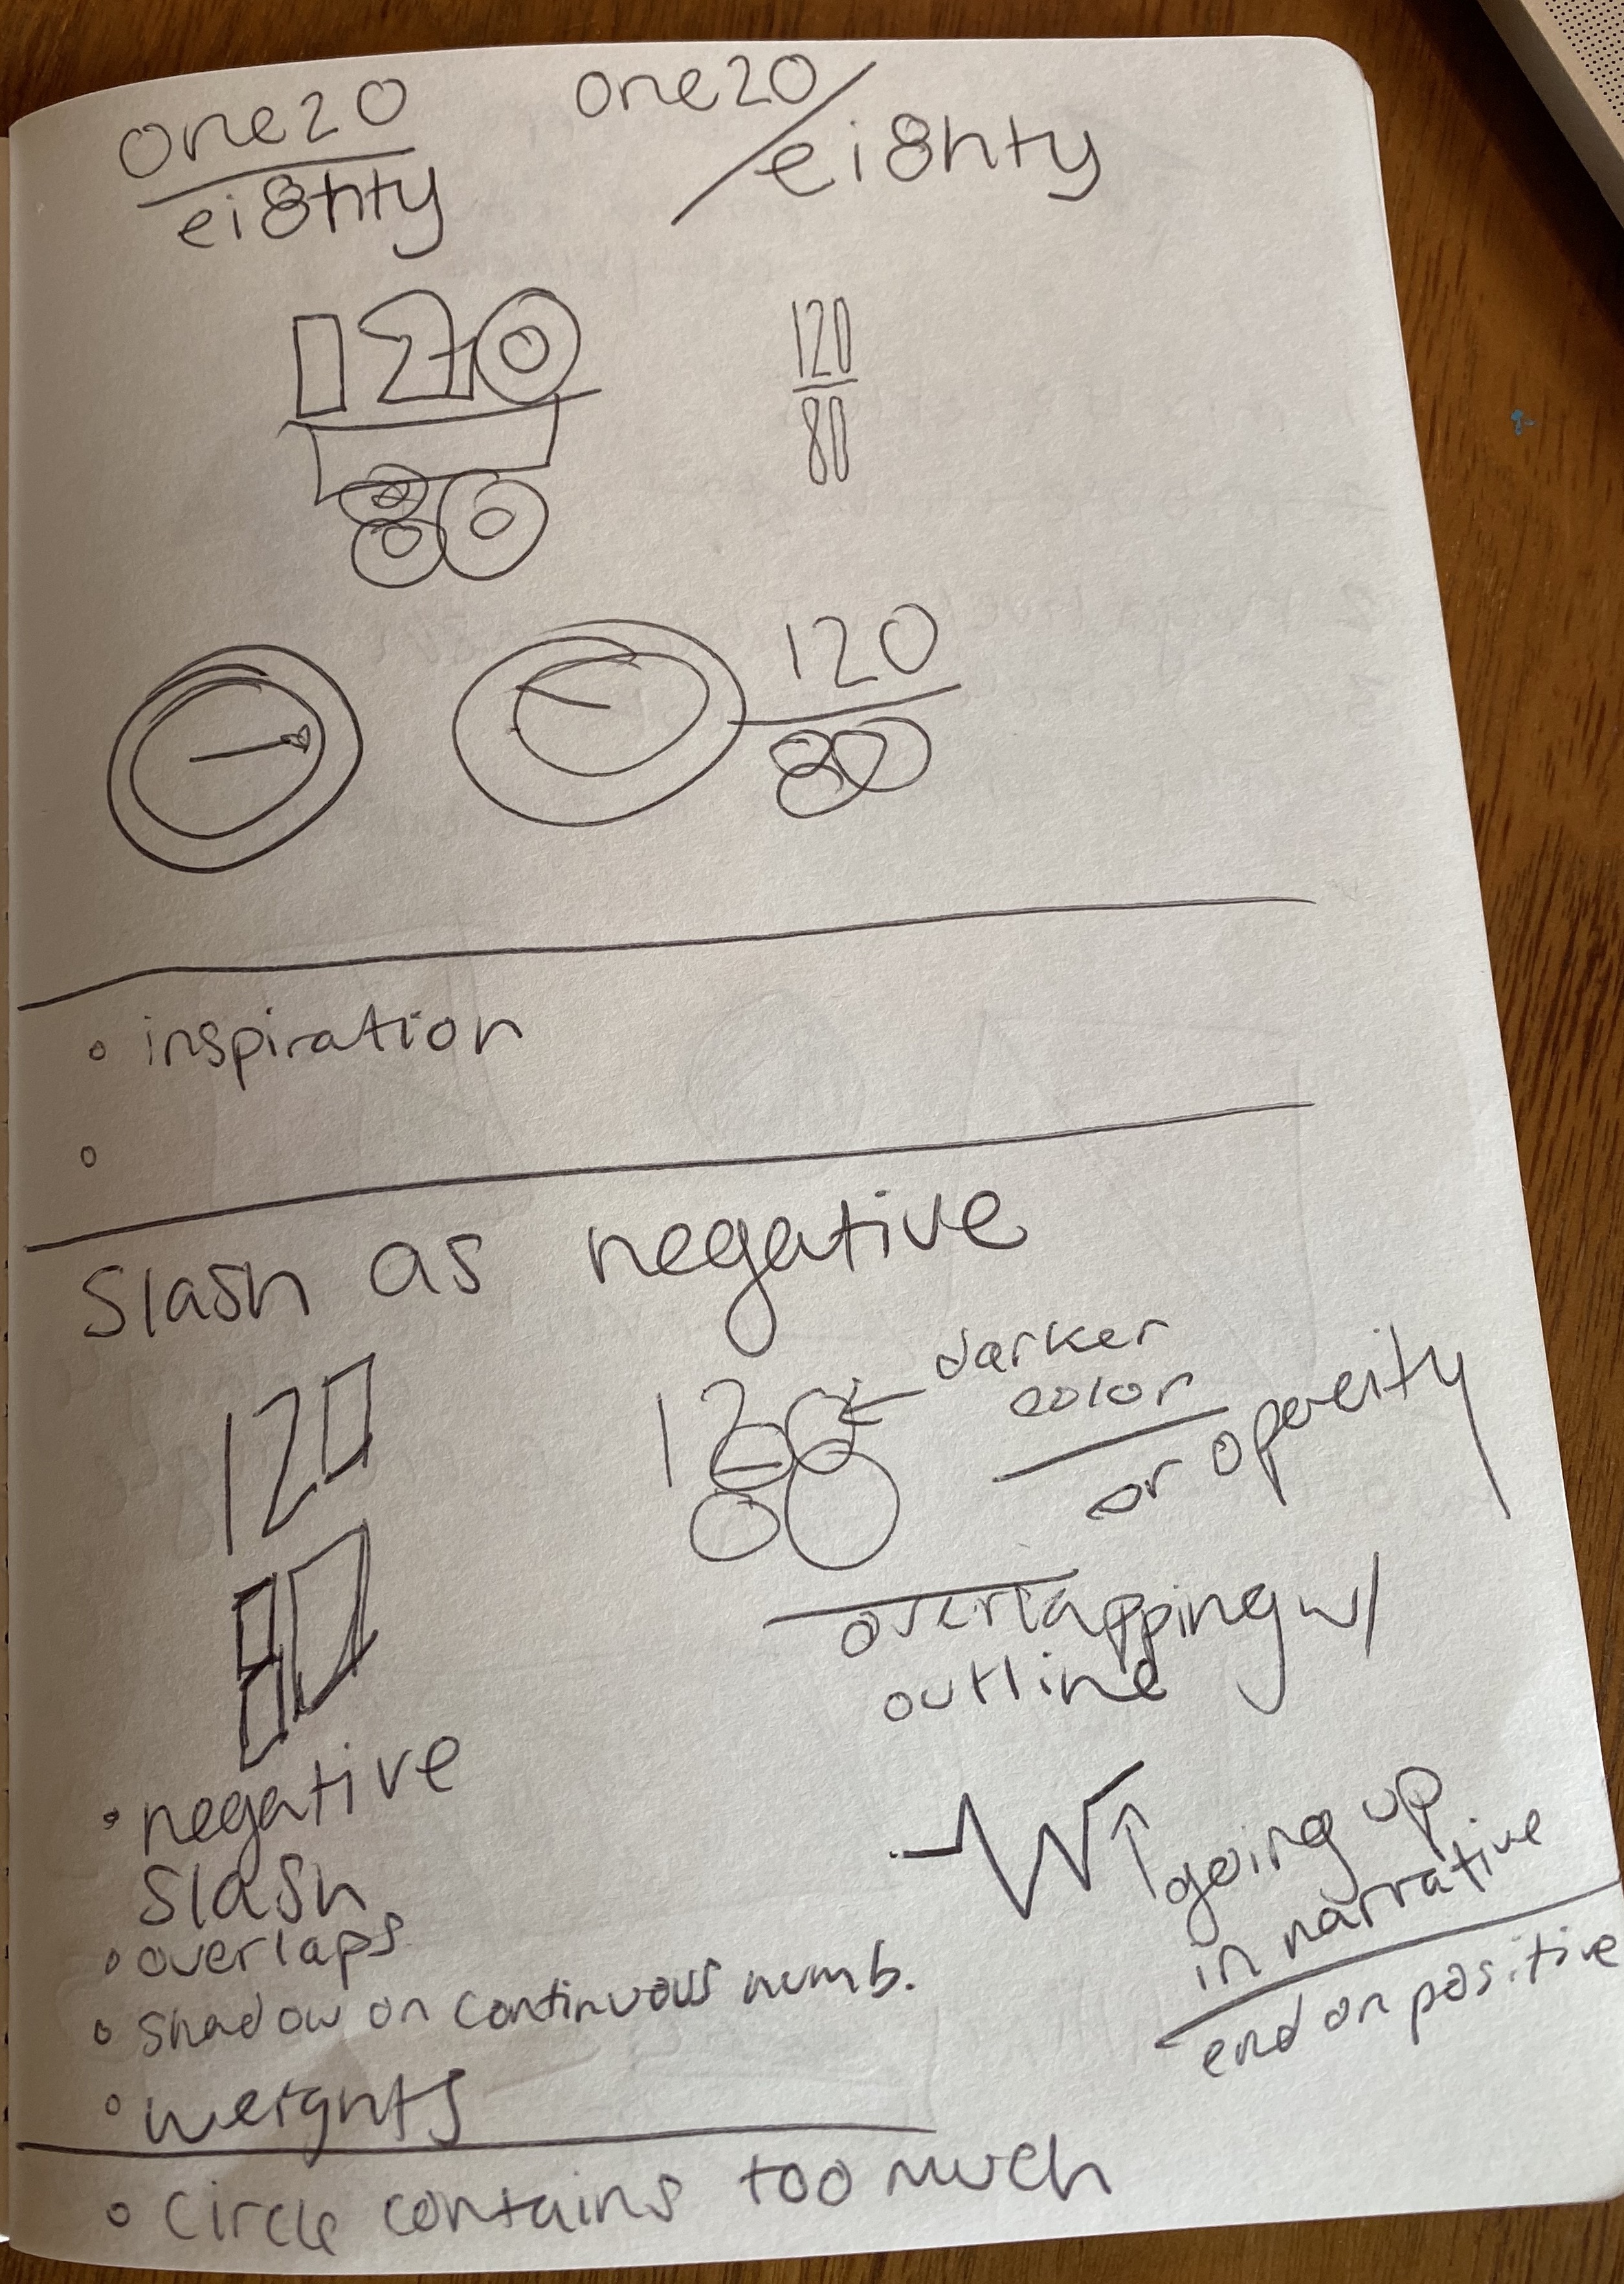 one20
ei8hty
one20/
ei8hty
120
80
120
80
120
80
inspiration
Slash as negative
120
80
120
80
darker
color
or opacity
overlapping w/
outline
negative
slash
overlaps
shadow on continuous numb.
weights
going up
in narrative
end on positive
circle contains too much